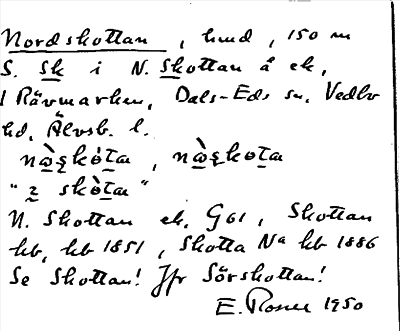 Nordskottan, hmd, 150 m
S. Sk i N. Skottan å ek,
i Rävmarken, Dals-Eds sn, Vedbo
hd, Älvsb. l.
N. Skottan ek. G61, Skottan
kb, hb 1851, Skotta Na hb 1886
Se Skottan! Jfr Sörskottan!
E. Rosell 1950